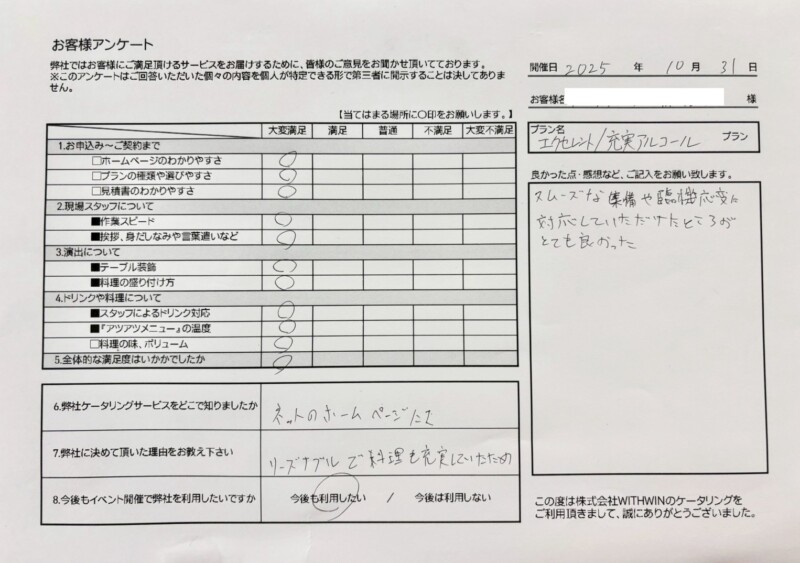 お客様アンケート
弊社ではお客様にご満足頂けるサービスをお届けするために、皆様のご意見をお聞かせ頂いております。
※このアンケートはご回答いただいた個々の内容を個人が特定できる形で第三者に開示することは決してありま
せん。
【当てはまる場所に〇印をお願いします。】
大変満足 満足 普通 不満足 大変不満足
1.お申込み～ご契約まで
□ホームページのわかりやすさ 〇
□プランの種類や選びやすさ 〇
□見積書のわかりやすさ 〇
2.現場スタッフについて
■作業スピード 〇
■挨拶、身だしなみや言葉遣いなど 〇
3.演出について
■テーブル装飾 〇
■料理の盛り付け方 〇
4.ドリンクや料理について
■スタッフによるドリンク対応 〇
■『アツアツメニュー』の温度 〇
□料理の味、ボリューム 〇
5.全体的な満足度はいかがでしたか 〇
6.弊社ケータリングサービスをどこで知りましたか ネットのホームページにて
7.弊社に決めて頂いた理由をお教え下さい リーズナブルで料理も充実していたため
8.今後もイベント開催で弊社を利用したいですか 今後も利用したい / 今後は利用しない
開催日 2025 年 10 月 31 日
お客様名 様
プラン名
エクセレント/充実アルコール プラン
良かった点・感想など、ご記入をお願い致します。
スムーズな準備や臨機応変に
対応していただけたところが
とても良かった
この度は株式会社WITHWINのケータリングを
ご利用頂きまして、誠にありがとうございました。